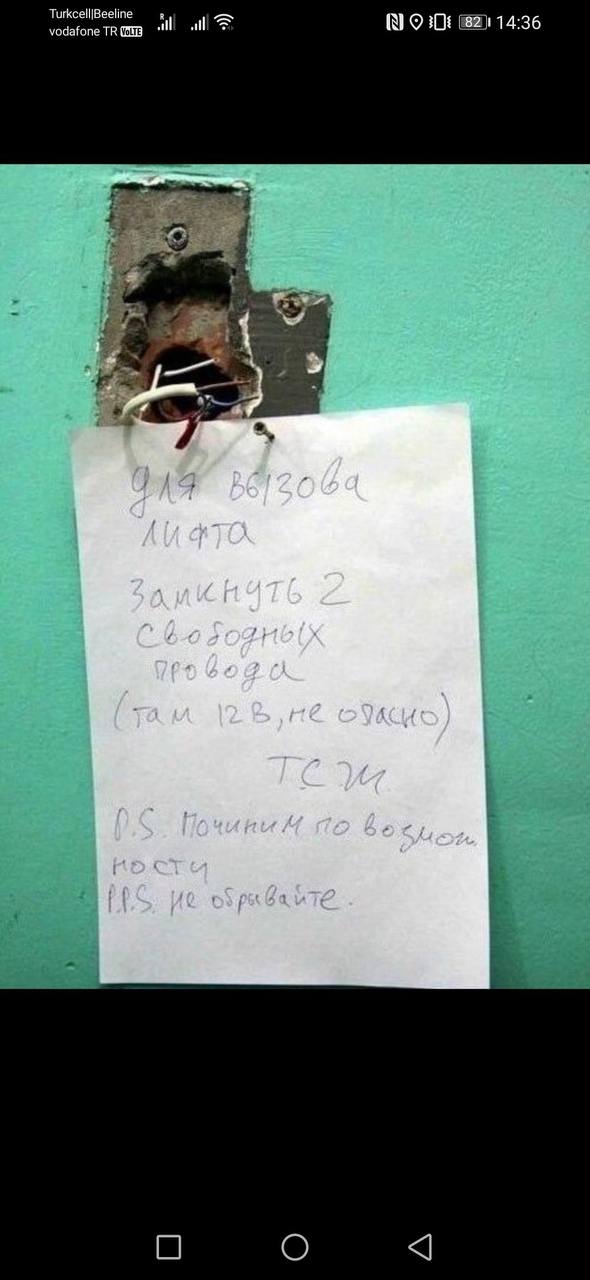 Turkcell|Beeline
vodafone TR VoLTE
R
82 14:36
Для вызова
лифта
Замкнуть 2
свободных
провода
(там 12 В, не опасно)
ТСЖ
P.S. Починим по возмож
ности
P.P.S. не обрывайте.